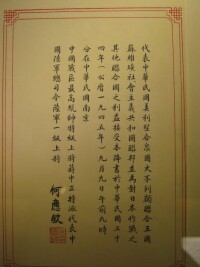 代表中華民國美利堅合眾國大不列顛聯合王國
蘇維埃社會主義共和國聯邦並為對日本作戰之
其他聯合國之利益接受本降書於中華民國三十
四年（公曆一九四五年）九月九日午前九時
分在中華民國南京
中國戰區最高統帥特級上將蔣中正特派代表中
國陸軍總司令陸軍一級上將
何應欽